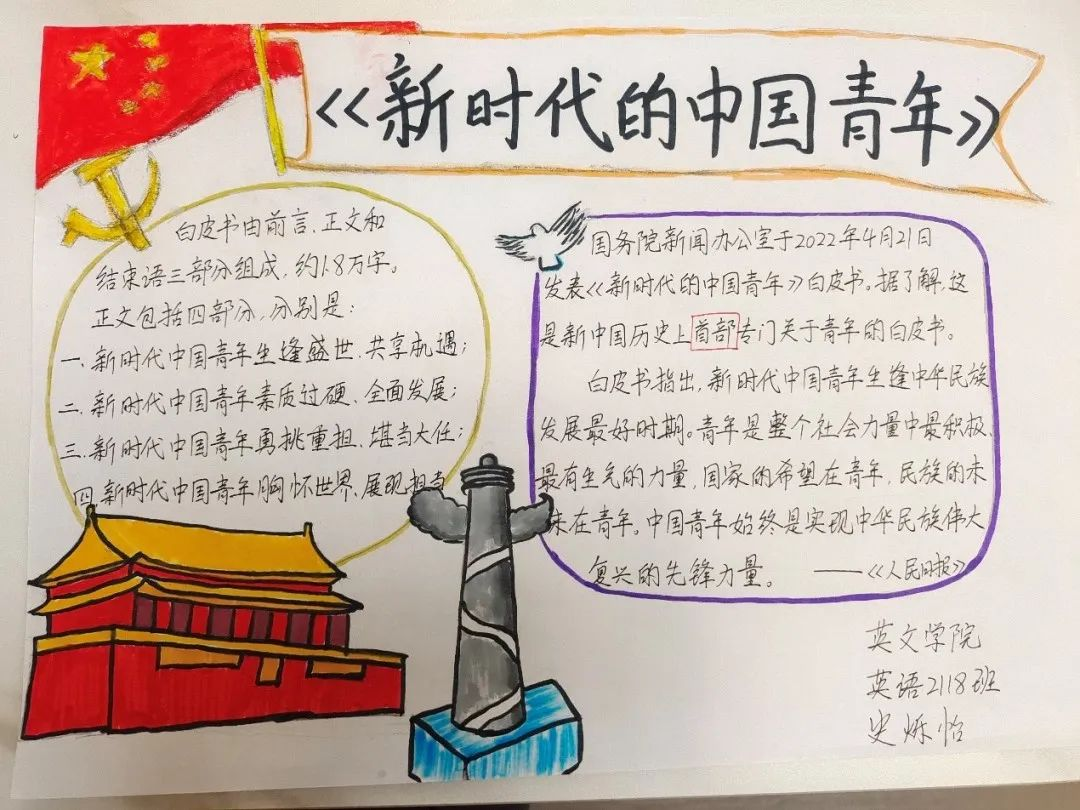 《新时代的中国青年》
白皮书由前言、正文和
结束语三部分组成，约1.8万字。
正文包括四部分，分别是：
一、新时代中国青年生逢盛世、共享机遇；
二、新时代中国青年素质过硬、全面发展；
三、新时代中国青年勇挑重担、堪当大任；
四、新时代中国青年胸怀世界、展现担当
国务院新闻办公室于2022年4月21日
发表《新时代的中国青年》白皮书。据了解，这
是新中国历史上首部专门关于青年的白皮书。
白皮书指出，新时代中国青年生逢中华民族
发展最好时期。青年是整个社会力量中最积极、
最有生气的力量，国家的希望在青年，民族的未
来在青年。中国青年始终是实现中华民族伟大
复兴的先锋力量。——《人民日报》
英文学院
英语2118班
史烁怡